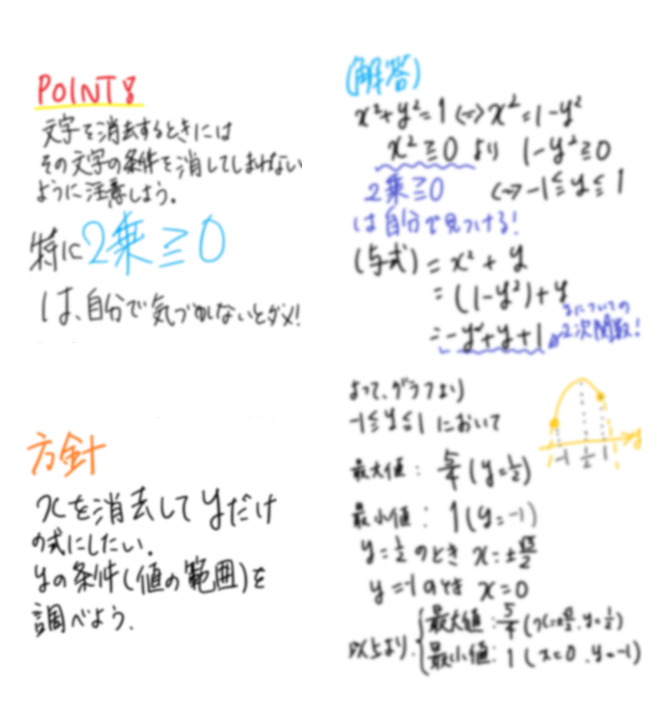 POINT 8
文字を消去するときには
その文字の条件を消してしまわない
ように注意しよう。
特に2乗≧0
は、自分で気づかないとダメ!
方針
xを消去してyだけ
の式にしたい.
yの条件(値の範囲)を
調べよう.
(解答)
x²+y²=1 ⇔ x²=1-y²
x²≧0 より 1-y²≧0
2乗≧0 ⇔ -1≦y≦1
は自分で見つける!
(与式) = x² + y
= (1-y²)+y
yについての
= -y²+y+1 2次関数!
よって、グラフより
-1≦y≦1 において
-1 1/2 1 y
最大値: 5/4 (y=1/2)
最小値: 1 (y=-1)
y=1/2 のとき x=±√3/2
y=-1のとき x=0
以上より.
最大値: 5/4 (x=±√3/2, y=1/2)
最小値: 1 (x=0, y=-1)